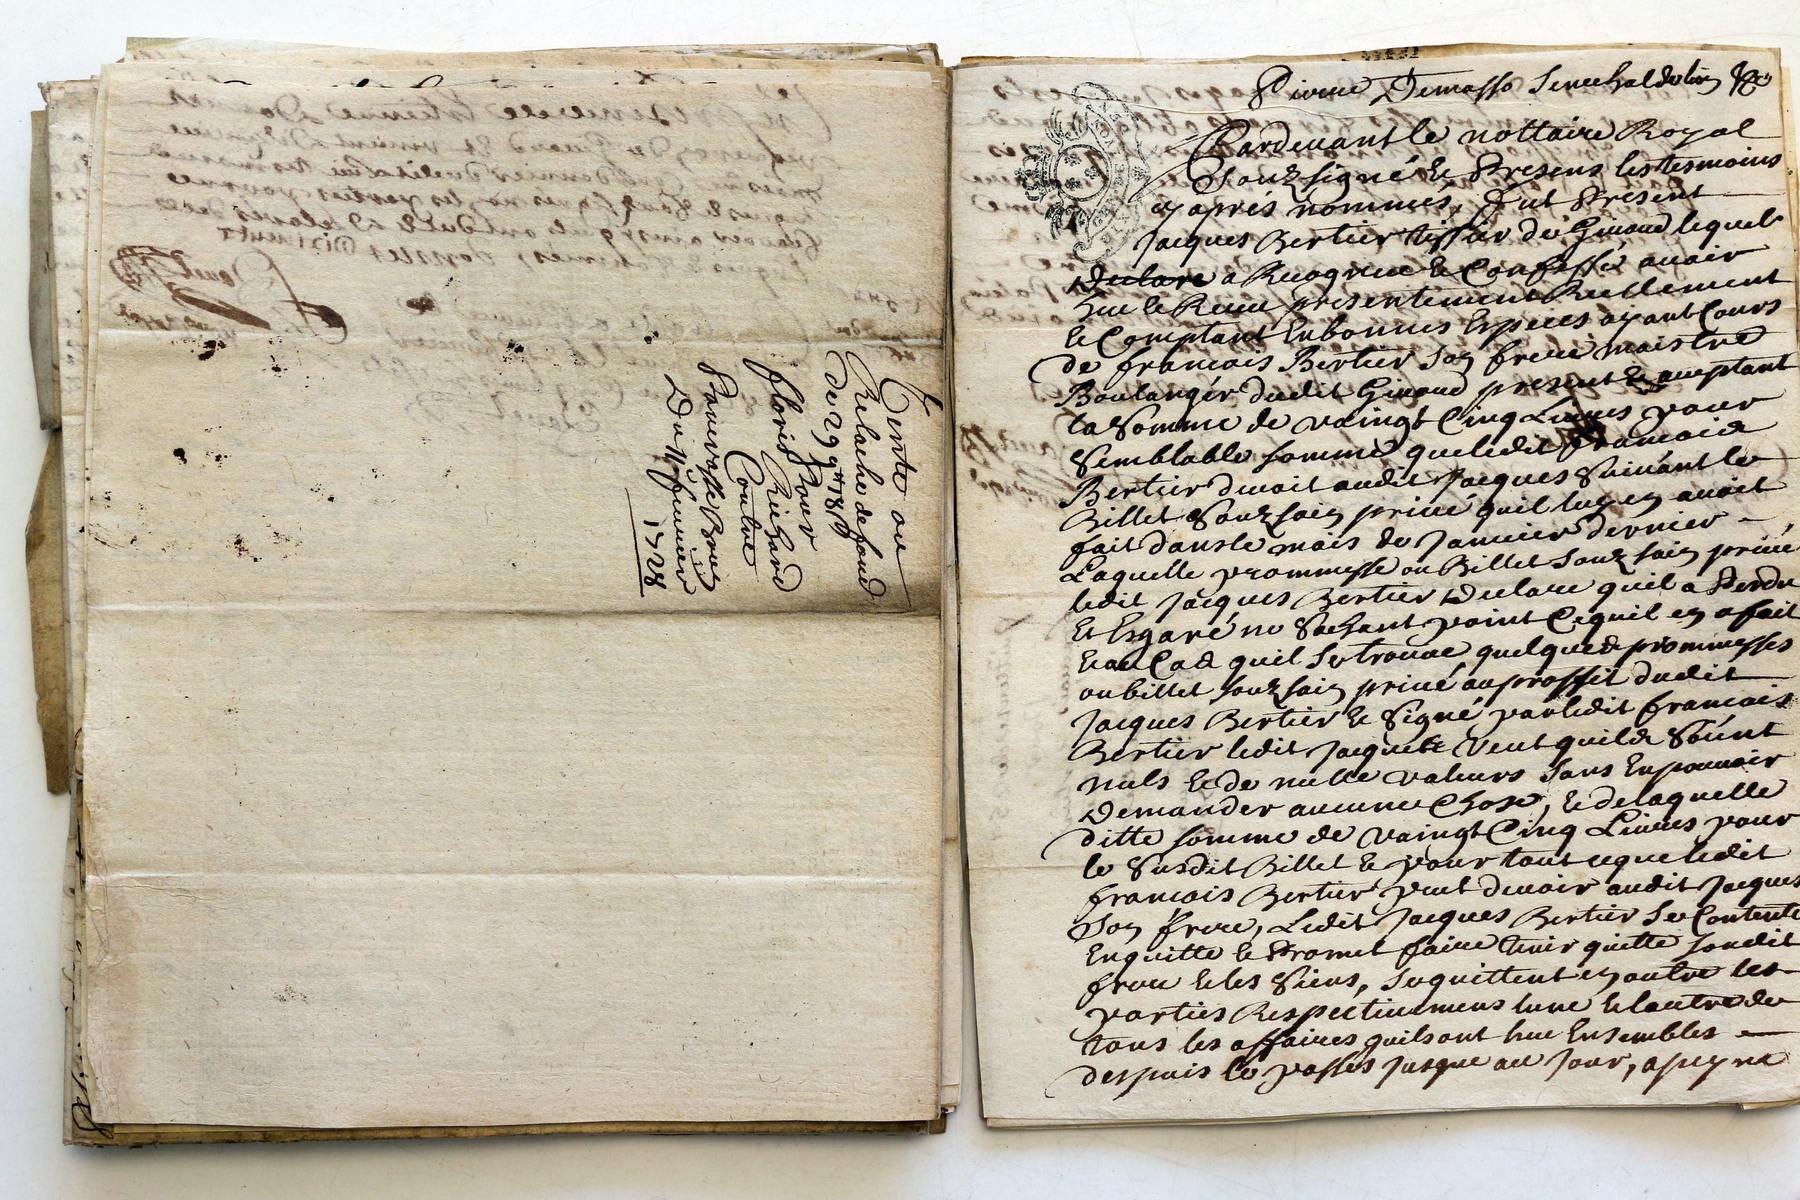 Vente ou
Relache de fond
de 29 ... 18 ...
Pour
Floris Richard
Contre
Du 11 feurier
1728
Pierre Demasso Senechal de lion &c
Pardeuant le nottaire Royal
Souzsigné Et Presens les tesmoins
cy apres nommés, fut Present
Jacques Bertier tissier de Giuaud lequel
Declare a Recogneu Et Confessé auoir
heu le Receu presentement Reellement
Et Comptant En bonnes Especes ayant Cours
de francois Bertier Son frere maistre
Boulangér dudit Giuaud present Et acceptant
la Somme de vaingt Cinq Liures pour
Semblable somme que ledit francois
Bertier deuoit audit Jacques Suiuant le
Billet Souz sein priué quil luy en auoit
fait dans le mois de Januier dernier –
Laquelle prommesse ou Billet Souz sein priué
ledit Jacques Bertier Declare quil a Perdu
Et Esgaré ne Sachant point Cequil en a fait
Et au Cas quil Se trouue quelques prommesses
ou billet souz sein priué au proffit dudit
Jacques Bertier Et Signé par ledit francois
Bertier ledit Jacques Veut quils Soint
nuls Et de nulle valeurs Sans En pouuoir
Demander aucune Chose, Et de laquelle
ditte somme de vaingt Cinq Liures pour
le Susdit Billet Et pour tout ce que ledit
francois Bertier peut deuoir audit Jacques
Son frere, Ledit Jacques Bertier Se Contente
En quitte Et Promet faire tenir quitte sondit
frere Et les Siens, Se quittent en outre les
parties Respectiuemens lune Et lautre de
tous les affaires quils ont heu Ensembles –
despuis le passés Jusque au Jour, a peyne